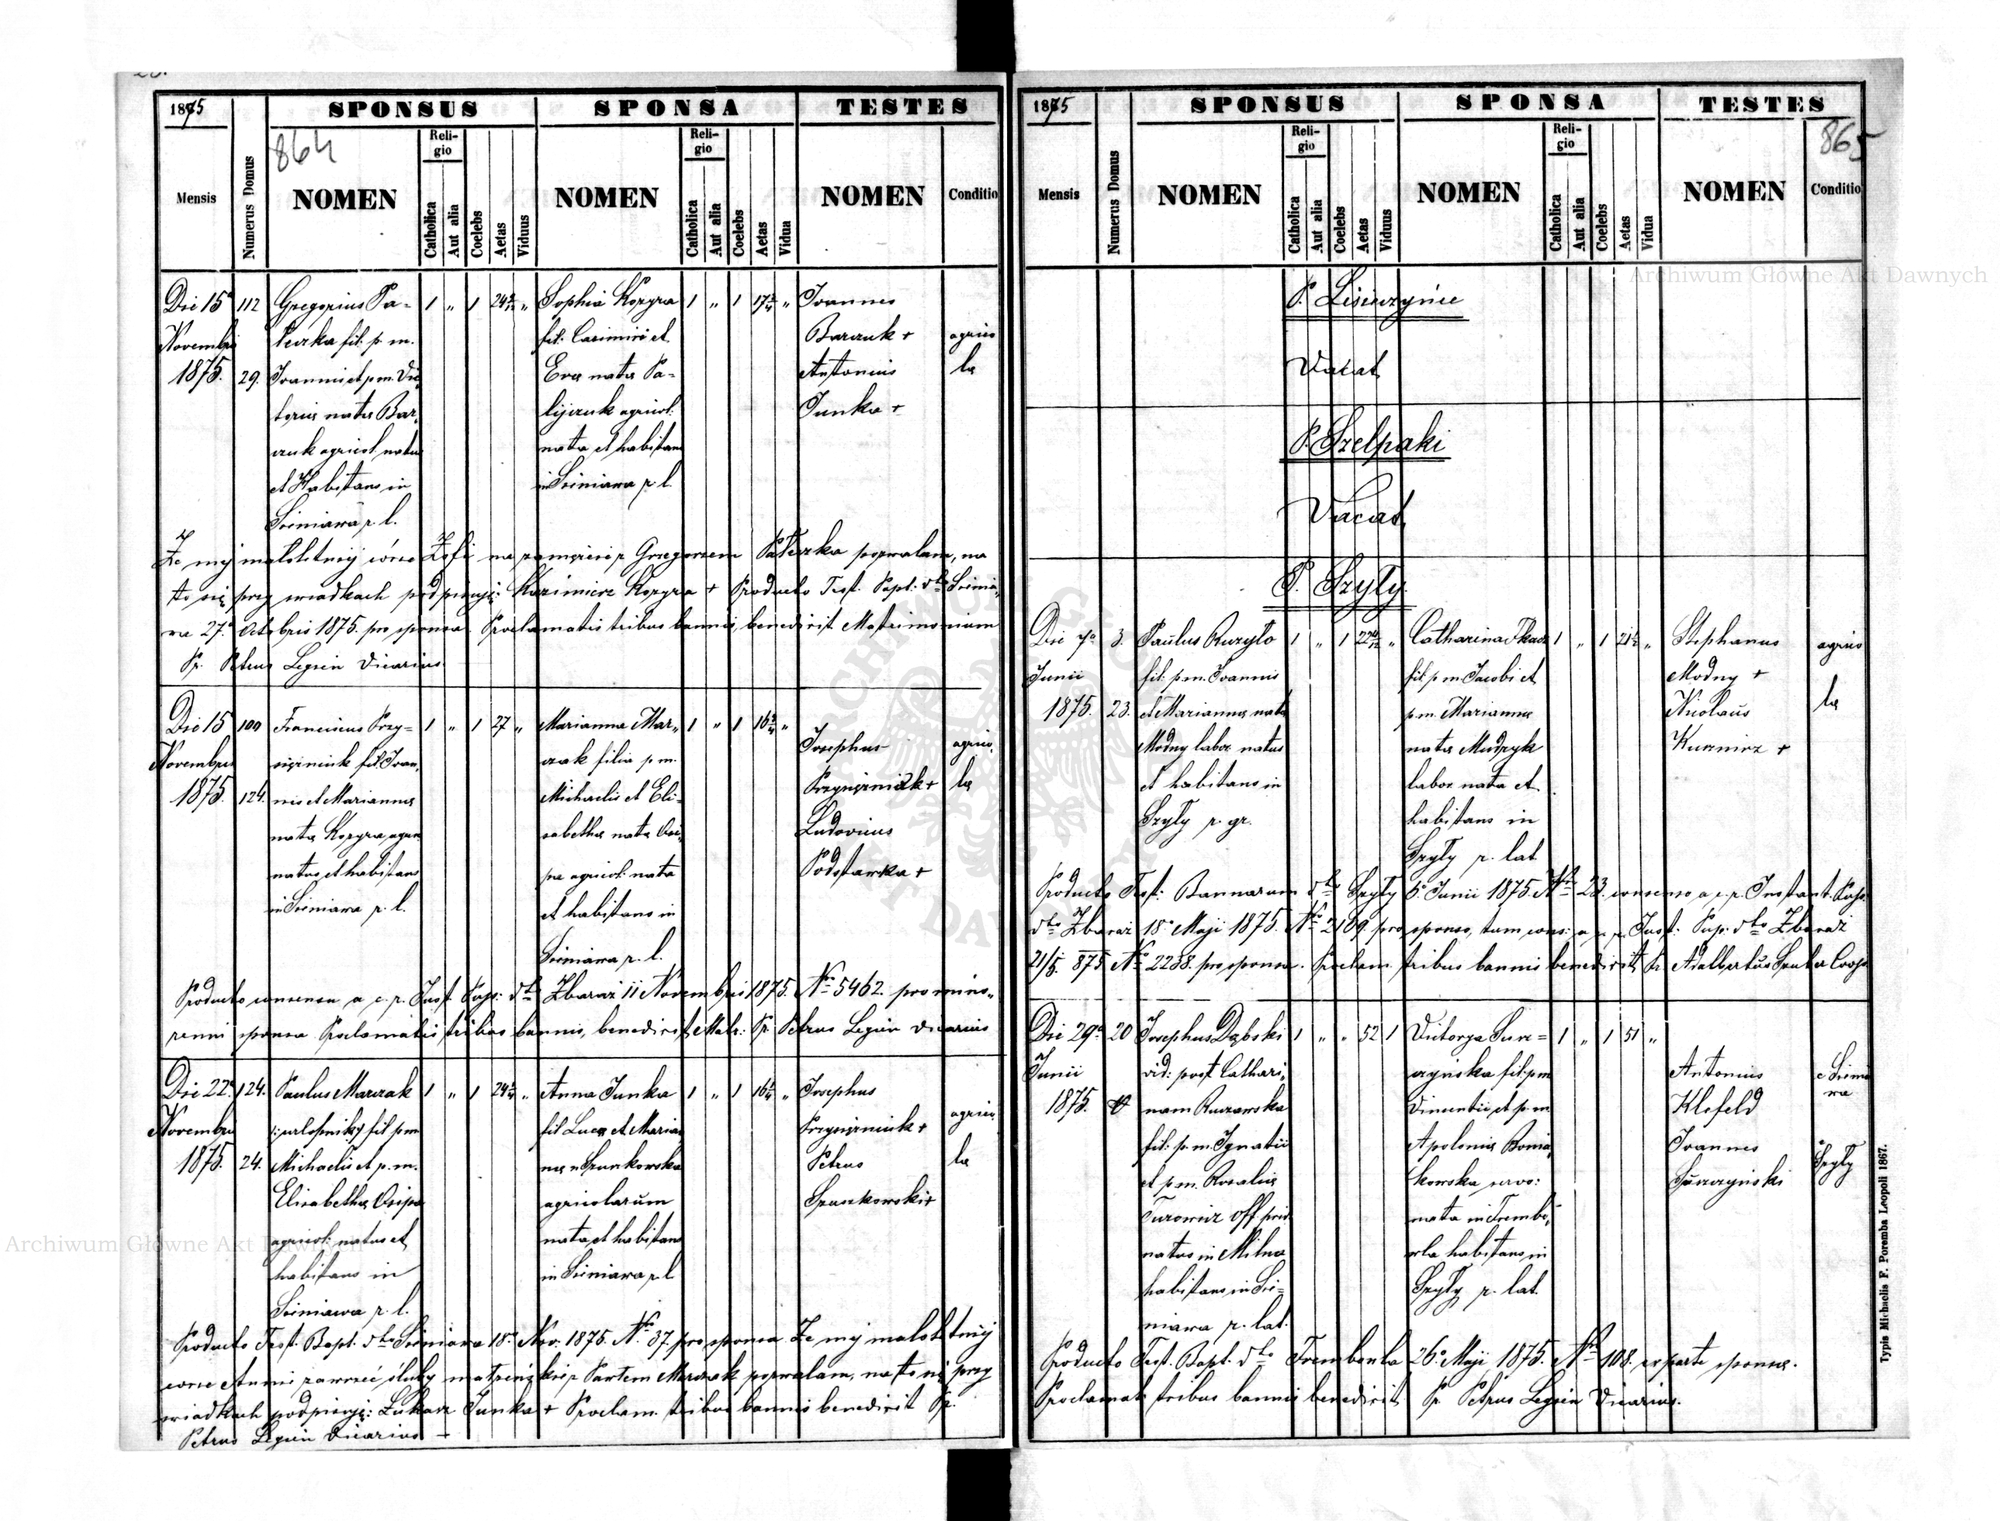 1875
SPONSUS
SPONSA
TESTES
864
Mensis
Numerus Domus
NOMEN
Religio
Catholica
Aut alia
Coelebs
Aetas
Viduus
NOMEN
Religio
Catholica
Aut alia
Coelebs
Aetas
Vidua
NOMEN
Conditio
Die 15ª
Novembris
1875.
112
29.
Gregorius Pa-
fil: p. m.
Joannis et p.m. Vic-
toria nata Bar-
czuk agricol. natus
et Habitans in
Siniawa r. l.
1 " 1 24 "
Sophia Kozyra
fil: Casimiri et
Eva nata Pa-
lijczuk agricol:
nata et habitans
in Siniawa r. l.
1 " 1 17 "
Joannes
Barczuk +
Antonius
Junka +
agrico
la
Że mojej małoletniej córce Zofii na zamęście z Grzegorzem pozwalam, na
to się przy świadkach podpisuję: Kazimierz Kozyra + Producto Test. Bapt. dto Sinia-
wa 27ª Octobris 1875. pro sponsa. Proclamatis tribus bannis, benedixit Matrimonium
Pr. Petrus Legein Vicarius
Die 15
Novembris
1875.
100
124.
Franciscus Przy-
sięzniuk fil: Joan-
nis et Marianna
nata Kozyra agric.
natus et habitans
in Siniawa r. l.
1 " 1 27 "
Marianna Mar-
czak filia p. m.
Michaelis et Eli-
sabetha nata Osi-
pa agricol: nata
et habitans in
Siniawa r. l.
1 " 1 16 "
Josephus
Przysięzniuk +
Ludovicus
Podstawka +
agrico
la
Producto consensu a c. r. Jud. Pup: dto Zbaraż 11 Novembris 1875. Nro 5462. pro mino-
renni sponsa. Proclamatis tribus bannis, benedixit Matr: Pr. Petrus Legein Vicarius
Die 22ª
Novembris
1875.
124.
24.
Paulus Marczak
fil: p.m.
Michaelis et p. m.
Elisabetha Osipa
agricol: natus et
habitans in
Siniawa r. l.
1 " 1 24 "
Anna Junka
fil: Luca et Marian-
na n. Szuszkowska
agricolarum
nata et habitans
in Siniawa r. l
1 " 1 16 "
Josephus
Przysięzniuk +
Petrus
Szuszkowski +
agrico
la
Producto Test. Bapt. dto Siniawa 18ª Nov. 1875. Nro 37. pro sponsa. Że mojej małoletniej
córce Annie zawrzeć śluby małżeńskie z Pawłem Marczak pozwalam, na to się przy
świadkach podpisuję: Łukasz Junka + Proclam. tribus bannis benedixit Pr.
Petrus Legein Vicarius
1875
SPONSUS
SPONSA
TESTES
865
Mensis
Numerus Domus
NOMEN
Religio
Catholica
Aut alia
Coelebs
Aetas
Viduus
NOMEN
Religio
Catholica
Aut alia
Coelebs
Aetas
Vidua
NOMEN
Conditio
P. Lisieczyńce
Vacat
P. Szelpaki
Vacat
P. Szyły
Die 7ª
Junii
1875.
3.
23.
Paulus Ruzyło
fil: p.m. Joannis
et Marianna nata
Modny labor. natus
et habitans in
Szyły r. gr.
1 " 1 22 "
Catharina Tkacz
fil: p.m. Jacobi et
p.m. Marianna
nata Mudzyk
labor. nata et
habitans in
Szyły r. lat.
1 " 1 21 "
Stephanus
Modny +
Nicolaus
Kuzmicz +
agrico
la
Producto Test: Bannorum dto Szyły 6ª Junii 1875. Nro 23. consenso a c. r. Instant. Pup.
dto Zbaraż 18ª Maji 1875. Nro 2109. pro sponso, tum cons: a c. r. Inst: Pup. dto Zbaraż
21/5 875 Nro 2288. pro sponsa. Proclam. tribus bannis benedixit Pr. Adalbertus Coop.
Die 29ª
Junii
1875.
20
Josephus Dąbski
vid: post Cathari-
nam Ruczawska
fil: p.m. Ignatii
et p.m. Rosalia
Turowicz off. priv.
natus in Milno
habitans in Si-
niawa r. lat.
1 " " 52 1
Victorya Sucz-
czyńska fil: p.m
Vincentii et p.m.
Apolonia Bonia-
kowska
nata in Trembo-
wla habitans in
Szyły r. lat.
1 " 1 51 "
Antonius
Klefeld
Joannes
e Sinia
wa
Szyły
Producto Test. Bapt. dto Trembowla 26ª Maji 1875. Nro 108. ex parte sponsae.
Proclamat. tribus bannis benedixit Pr. Petrus Legein Vicarius.
Typis Michaelis F. Poremba Leopoli 1867.
Archiwum Główne Akt Dawnych
Archiwum Główne Akt Dawnych